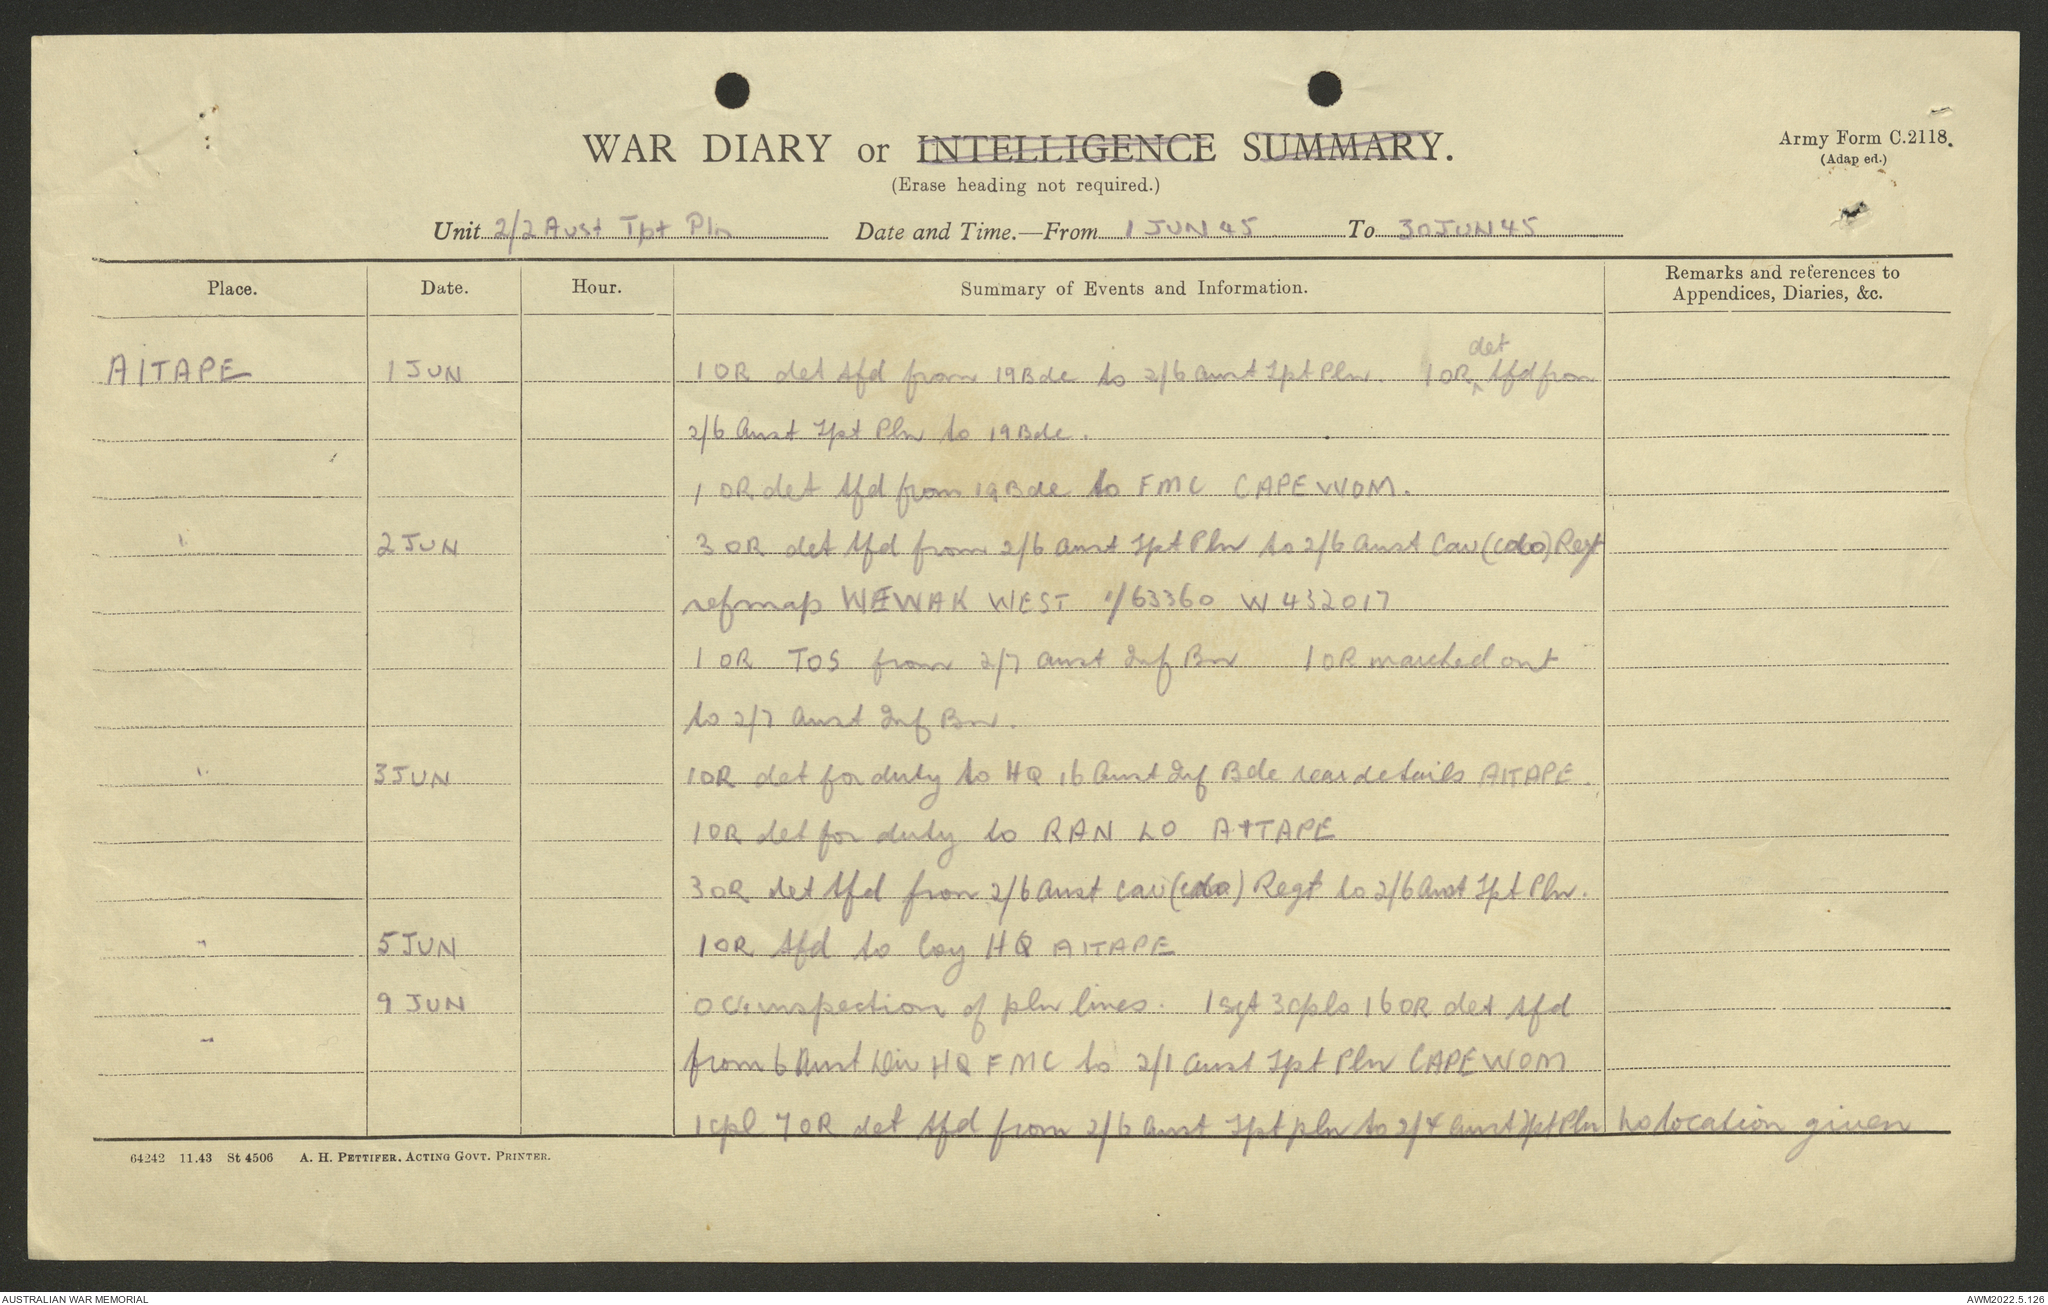 WAR DIARY or INTELLIGENCE SUMMARY.
(Erase heading not required.)
Army Form C.2118.
(Adap ed.)
Unit 2/2 Aust Tpt Pln Date and Time.—From 1 JUN 45 To 30 JUN 45
Place. Date. Hour. Summary of Events and Information. Remarks and references to Appendices, Diaries, &c.
det
AITAPE 1 JUN 1 OR det tfd from 19 Bde to 2/6 Aust Tpt Pln. 1 OR ^ tfd from
2/6 Aust Tpt Pln to 19 Bde.
1 OR det tfd from 19 Bde to FMC CAPE WOM.
" 2 JUN 3 OR det tfd from 2/6 Aust Tpt Pln to 2/6 Aust Cav (Cdo) Regt
ref map WEWAK WEST 1/63360 W 432017
1 OR TOS from 2/7 Aust Inf Bn 1 OR marched out
to 2/7 Aust Inf Bn.
" 3 JUN 1 OR det for duty to HQ 16 Aust Inf Bde rear details AITAPE.
1 OR det for duty to RAN LO AITAPE
3 OR det tfd from 2/6 Aust Cav (Cdo) Regt to 2/6 Aust Tpt Pln.
" 5 JUN 1 OR tfd to Coy HQ AITAPE
9 JUN OC's inspection of pln lines. 1 sgt 3 cpls 16 OR det tfd
" from 6 Aust Div HQ FMC to 2/1 Aust Tpt Pln CAPE WOM
1 cpl 7 OR det tfd from 2/6 Aust Tpt pln to 2/4 Aust Tpt Pln No location given
64242 11.43 St 4506 A. H. PETTIFER, ACTING GOVT. PRINTER.
AUSTRALIAN WAR MEMORIAL
AWM2022.5.126